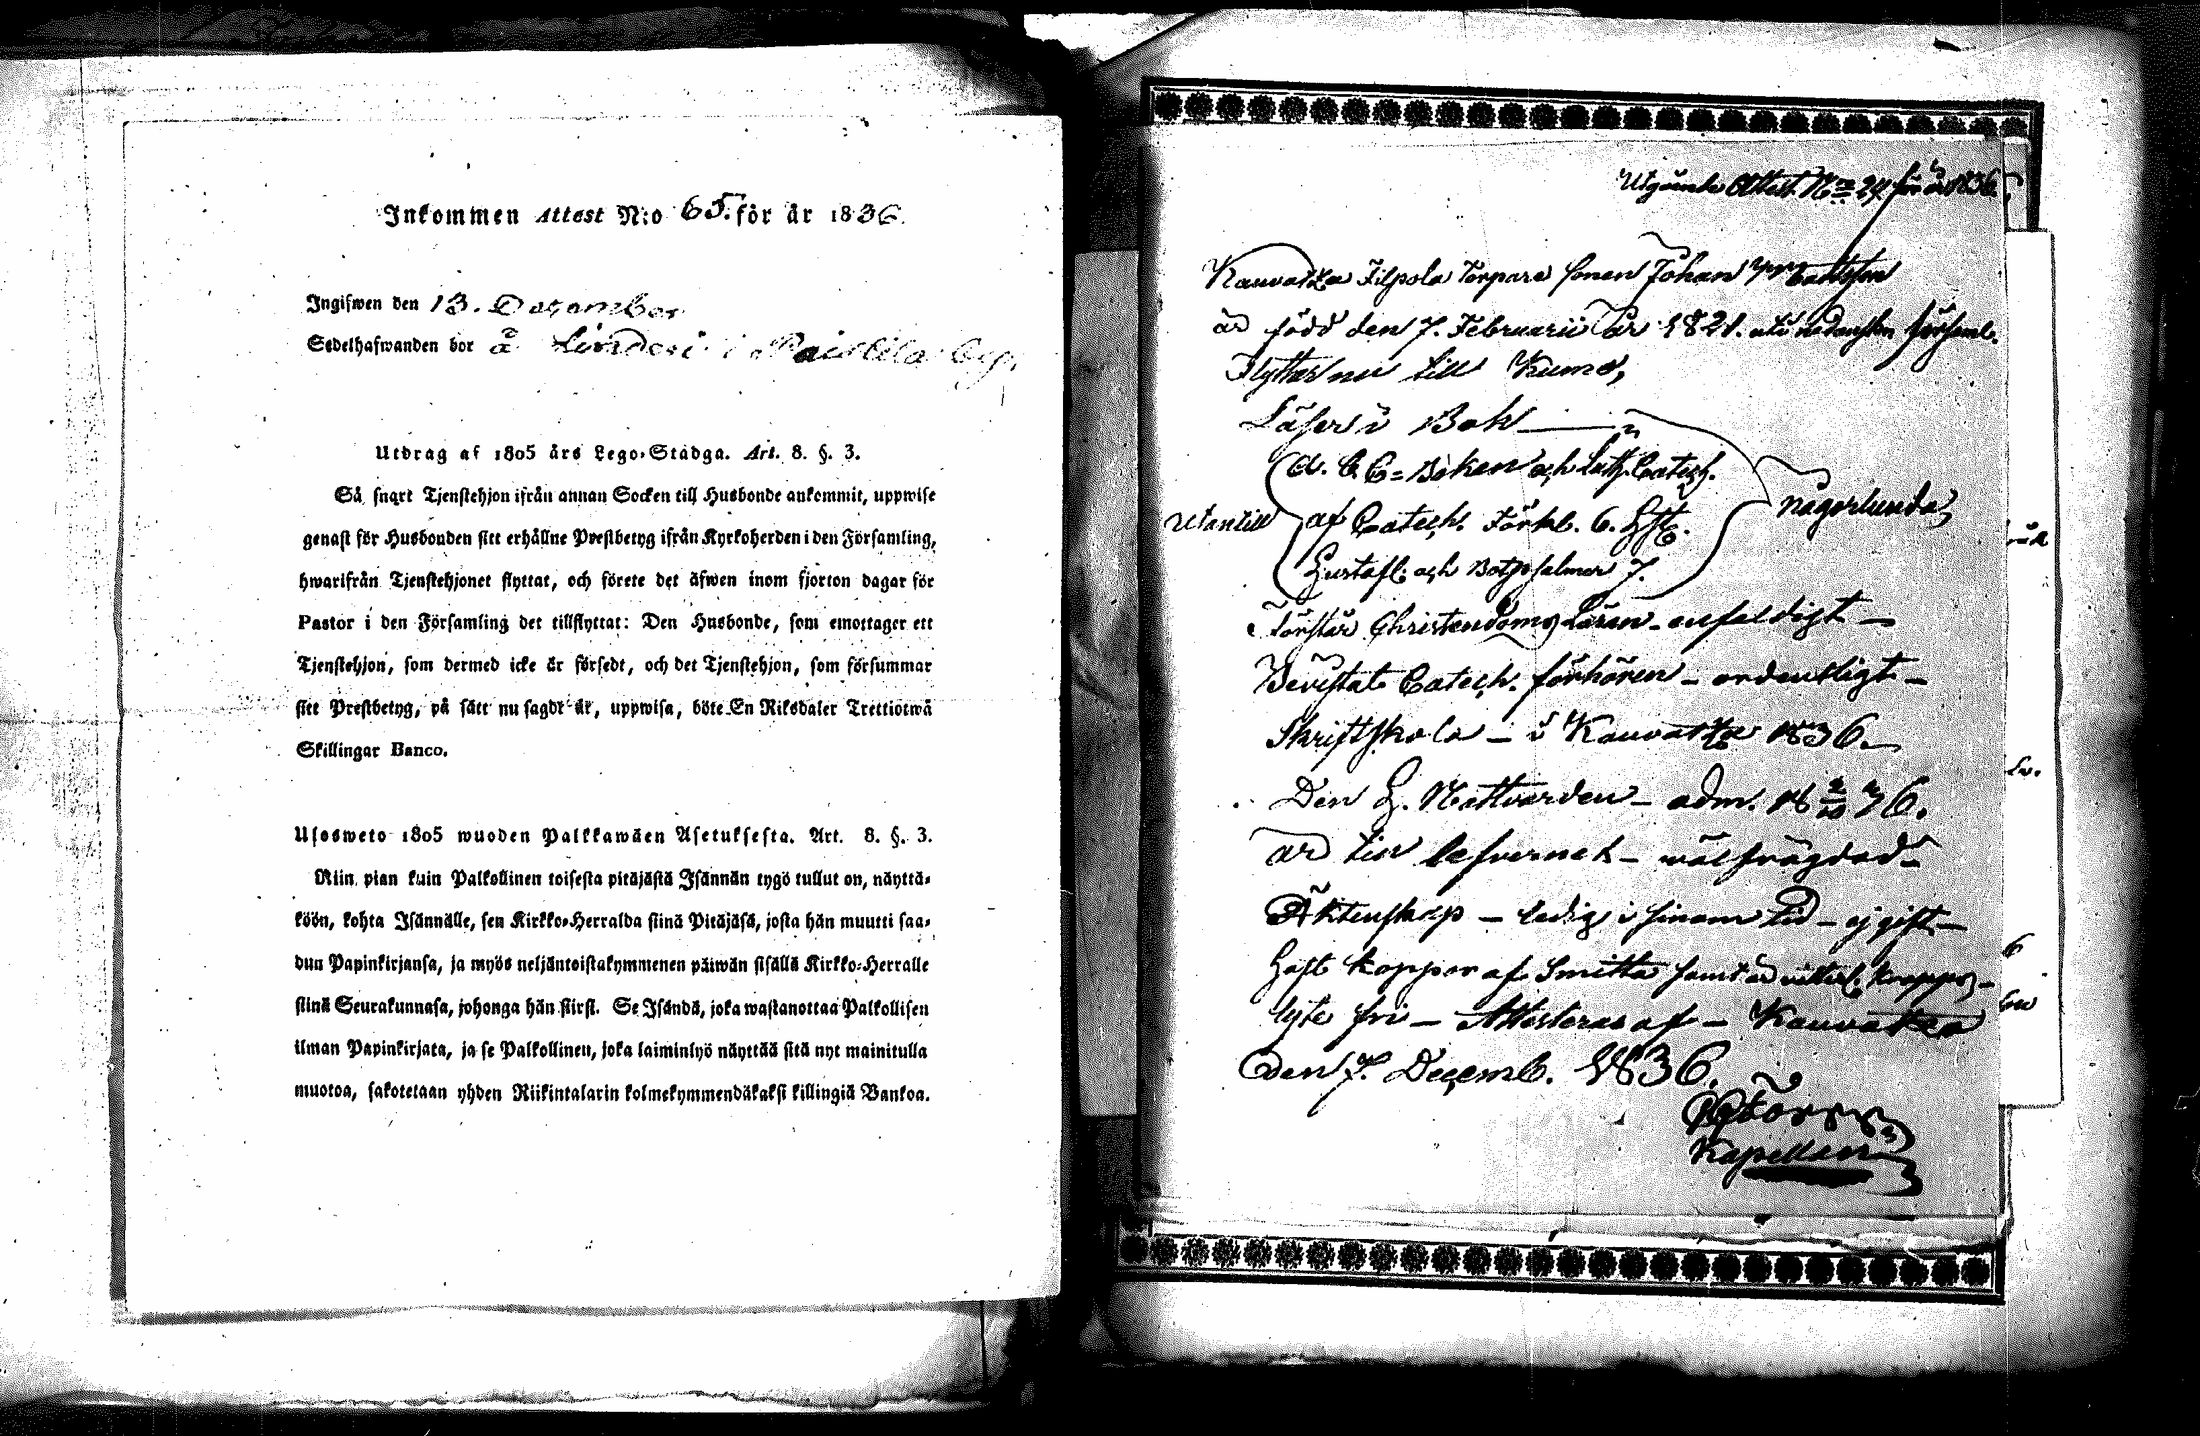 Inkommen Attest N:o 65. för år 1836.
Ingifwen den 13. December
Sedelhafwanden bor å Linderi i Paistila by.
Utdrag af 1805 års Lego-Stadga. Art. 8. §. 3.
Så snart Tjenstehjon ifrån annan Socken till Husbonde ankommit, uppwise
genast för Husbonden sitt erhållne Prestbetyg ifrån Kyrkoherden i den Församling,
hwarifrån Tjenstehjonet flyttat, och förete det äfwen inom fjorton dagar för
Pastor i den Församling det tillflyttat: Den Husbonde, som emottager ett
Tjenstehjon, som dermed icke är försedt, och det Tjenstehjon, som försummar
sitt Prestbetyg, på sätt nu sagdt är, uppwisa, böte En Riksdaler Trettiotwå
Skillingar Banco.
Ulosweto 1805 wuoden Palkkawäen Asetuksesta. Art. 8. §. 3.
Niin pian kuin Palkollinen toisesta pitäjästä Isännän tygö tullut on, näyttä-
köön, kohta Isännälle, sen Kirkko-Herralda siinä Pitäjäsä, josta hän muutti saa-
dun Papinkirjansa, ja myös neljäntoistakymmenen päiwän sisällä Kirkko-Herralle
siinä Seurakunnasa, johonga hän siirsi. Se Isändä, joka wastanottaa Palkollisen
ilman Papinkirjata, ja se Palkollinen, joka laiminlyö näyttää sitä nyt mainitulla
muotoa, sakotetaan yhden Riikintalarin kolmekymmendäkaksi killingiä Bankoa.
Utgående Attest N:o 24 för år 1836.
Kauvatza Filpola Torpare sonen Johan Mattsson
är född den 7. Februarii år 1821. uti nedanstln församl.
Flyttar nu till Kumo,
Läser i Bok
a. b C-Boken och Luth. Catech.
Utantill af Catech. Förkl. 6. Hft. någorlunda,
Gustafl. och Botpsalmer 7.
Förstår Christendoms Läran - enfaldigt -
Bevistat Catech. förhören - ordentligt -
Skriftskola - i Kauvatza 1836.
Den H. Nattvarden - adm. 18 2/10 36.
är till lefvernet - wälfrägdad -
Äktenskap - ledig i sinom tid - ej gift -
Haft koppor af Smitta samt är
lyte fri - Attesteras af - Kauvatza
den 7. Decemb. 1836.
Kapellan